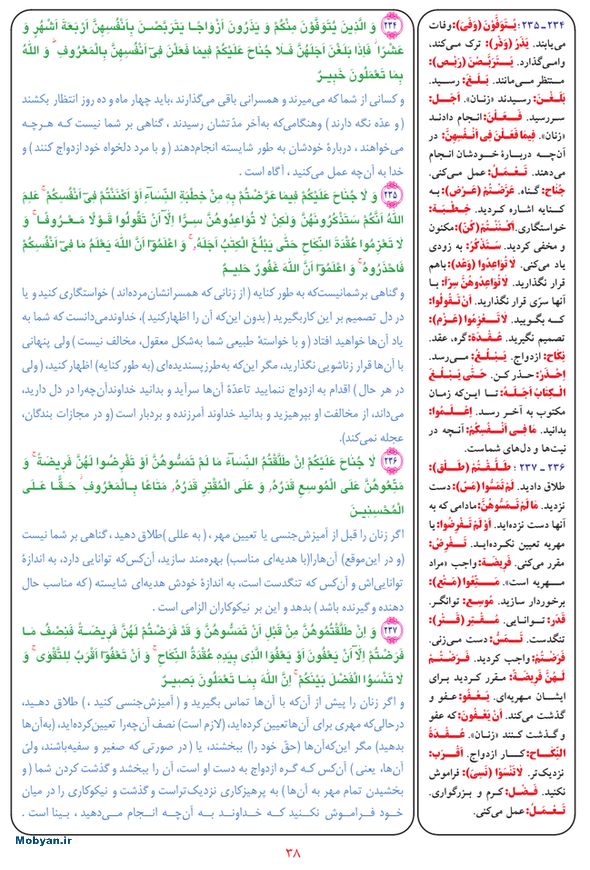 ۲۳۴ وَ الَّذینَ یُتَوَفَّوْنَ مِنْکُمْ وَ یَذَرُونَ اَزْوٰاجًـا یَتَرَبَّصْـنَ بِـاَنْفُسِهِنَّ اَرْبَعَةَ اَشْهُرٍ وَ
عَشْرًا ۖ فَاِذٰا بَلَغْنَ اَجَلَهُنَّ فَـلٰا جُنٰاحَ عَلَیْکُمْ فیمٰا فَعَلْنَ فیٓ اَنْفُسِهِنَّ بِـالْمَعْرُوفِ ۗ وَ اللّٰهُ
بِمٰا تَعْمَلُونَ خَبیرٌ
و کسانی از شما که می‌میرند و همسرانی باقی می‌گذارند ، باید چهار ماه و ده روز انتظار بکشند
( و عدّه نگه دارند ) وهنگامی‌که به‌آخر مدّتشان رسیدند ، گناهی بر شما نیست کـه هرچـه
می‌خواهند ، دربارۀ خودشان به طور شایسته انجام‌دهند ( و با مرد دلخواه خود ازدواج کنند ) و
خدا به آن‌چه عمل می‌کنید ، آگاه است .
۲۳۵ وَ لٰا جُنٰاحَ عَلَیْکُمْ فیمٰا عَرَّضْتُمْ بِهِ مِنْ خِطْبَةِ النِّسٰآءِ اَوْ اَکْنَنْتُمْ فیٓ اَنْفُسِکُمْ ۚ عَلِمَ
اللّٰهُ اَنَّکُمْ سَتَذْکُرُونَهُنَّ وَ لٰکِنْ لٰا تُوٰاعِدُوهُنَّ سِـرًّا اِلّٰآ اَنْ تَقُولُوا قَوْلًا مَـعْرُوفًـا ۚ وَ
لٰا تَعْزِمُوا عُقْدَةَ النِّکٰاحِ حَتّٰی یَبْلُغَ الْکِتٰبُ اَجَلَهُ ۚ وَ اعْلَمُوٓا اَنَّ اللّٰهَ یَعْلَمُ مٰا فیٓ اَنْفُسِکُمْ
فَاحْذَرُوهُ ۚ وَ اعْلَمُوٓا اَنَّ اللّٰهَ غَفُورٌ حَلیـمٌ
و گناهی برشمانیست‌که به طور کنایه ( از زنانی که همسرانشان‌مرده‌اند ) خواستگاری کنید و یا
در دل تصمیم بر این کاربگیرید ( بدون این‌که آن را اظهارکنید )، خداوندمی‌دانست که شما به
یاد آن‌ها خواهید افتاد ( و با خواستۀ طبیعی شما به‌شکل معقول، مخالف نیست ) ولی پنهانی
با آن‌ها قرار زناشویی نگذارید، مگر این‌که به‌طرزپسندیده‌ای (به طور کنایه) اظهار کنید، ( ولی
در هر حال ) اقدام به ازدواج ننمایید تاعدّۀ آن‌ها سرآید و بدانید خداوندآن‌چه‌را در دل دارید،
می‌داند، از مخالفت او بپرهیزید و بدانید خداوند آمرزنده و بردبار است ( و در مجازات بندگان،
عجله نمی‌کند).
۲۳۶ لٰا جُنٰاحَ عَلَیْکُمْ اِنْ طَلَّقْتُمُ النِّسٰآءَ مٰا لَمْ تَمَسُّوهُنَّ اَوْ تَفْرِضُوا لَهُنَّ فَریضَةً ۚ وَ
مَتِّعُوهُنَّ عَلَی الْمُوسِعِ قَدَرُهُ وَ عَلَی الْمُقْتِرِ قَدَرُهُ مَتٰاعًا بِـالْمَعْرُوفِ ۖ حَـقًّـا عَـلَـی
الْمُحْسِنیـنَ
اگر زنان را قبل از آمیزش‌جنسی یا تعیین مهر ، ( به عللی )طلاق دهید ، گناهی بر شما نیست
(و در این‌موقع) آن‌هارا(با هدیه‌ای مناسب) بهره‌مند سازید، آن‌کس‌که توانایی دارد، به اندازۀ
توانایی‌اش و آن‌کس که تنگدست است، به اندازۀ خودش هدیه‌ای شایسته ( که مناسب حال
دهنده و گیرنده باشد ) بدهد و این بر نیکوکاران الزامی است .
۲۳۷ وَ اِنْ طَلَّقْتُمُوهُنَّ مِنْ قَبْلِ اَنْ تَمَسُّوهُنَّ وَ قَدْ فَرَضْتُمْ لَهُنَّ فَریضَةً فَنِصْفُ مٰـا
فَرَضْتُمْ اِلّٰآ اَنْ یَعْفُونَ اَوْ یَعْفُوَا الَّذی بِیَدِهِ عُقْدَةُ النِّکٰاحِ ۚ وَ اَنْ تَعْفُوٓا اَقْرَبُ لِلتَّقْوٰی ۚ وَ
لٰا تَنْسَوُا الْفَضْلَ بَیْنَکُمْ ۚ اِنَّ اللّٰهَ بِمٰـا تَعْمَلُونَ بَصیرٌ
و اگر زنان را پیش از آن‌که با آن‌ها تماس بگیرید و ( آمیزش‌جنسی کنید ، ) طلاق دهـید،
درحالی‌که مهری برای آن‌هاتعیین کرده‌اید، (لازم است) نصف آن‌چه‌را تعیین‌کرده‌اید، (به‌آن‌ها
بدهید) مگر این‌که‌آن‌ها (حقّ خود را) ببخشند، یا ( در صورتی که صغیر و سفیه‌باشند، ولیّ
آن‌ها، یعنی ) آن‌کس کـه گـره ازدواج به دست او است، آن را ببخشد و گذشت کردن شما ( و
بخشیدن تمام مهر به آن‌ها ) به پرهیزکاری نزدیک‌تراست و گذشت و نیکوکاری را در میان
خـود فرامـوش نکنـید کـه خـداونـد بـه آن‌چـه انجـام می‌دهید ، بینا است .
۲۳۴ ـ ۲۳۵ ؛ یُتَوَفَّوْنَ (وَفَیَ): وفات
می‌یابند. یَذَرُ (وَذَرَ): ترک می‌کند،
وامـی‌گذارد. یَـتَرَبَّصْنَ (رَبَصَ):
منتظر مـی‌مانند. بَـلَغَ: رسـید.
بَلَغْنَ: رسیدند «زنان». اَجَل:
سررسید. فَـعَـلْنَ: انجام دادنـد
«زنان». فیمٰا فَعَلْنَ فی اَنْفُسِهِنَّ: در
آن‌چـه دربـارۀ خـودشان انجام
می‌دهند. تَـعْمَلُ: عمل می‌کنی.
جُناح: گناه. عَرَّضْتُمْ (عَـرَضَ): به
کـنایه اشاره کـردید. خِـطْبَة:
خواستگاری. اَکْنَنْتُمْ (کَنَّ): مکنون
و مخفی کردید. سَتَذْکُرُ: به زودی
یاد می‌کنی. لٰا تُوٰاعِدُوا (وَعَدَ): باهم
قرار نگذارید. لٰا تُوٰاعِدُوهُنَّ سِرًّا: با
آنها سرّی قرار نگذارید. اَنْ تَقُولُوا:
کـه بگـویید. لٰا تَـعْزِمُوا (عَـزَمَ):
تصمیم نگیرید. عُـقْدَة: گره، عقد.
نِکٰاح: ازدواج. یَـبْلُغُ: مـی‌رسد.
اِحْذَرْ: حـذر کـن. حَـتّٰی یَـبْلُغَ
الْـکِتٰابُ اَجَـلَهُ: تـا ایـن‌که زمان
مکتوب به آخـر رسـد. اِعْـلَمُوا:
بدانید. مٰا فی اَنْفُسِکُمْ: آنـچه در
نیت‌ها و دل‌های شماست.
۲۳۶ ـ ۲۳۷ ؛ طَـلَّـقْتُمْ (طَـلَقَ):
طلاق دادید. لَمْ تَمَسُّوا (مَسَّ): دست
نزدید. مٰا لَمْ تَمَسُّوهُنَّ: مادامی که به
آنها دست نزده‌اید. اَوْ لَمْ تَفْرِضُوا: یا
مهریه تعیین نکـرده‌ایـد. تَـفْرِضُ:
مقرر می‌کنی. فَریضَة: واجب «مراد
مـهریه است». مَـتِّعُوا (مَـتَعَ):
برخوردار سازید. مُوسِـع: توانگر.
قَـدَر: تـوانـایی. مُـقْتِر (قَـتَرَ):
تنگدست. تَـمَسُّ: دست می‌زنی.
فَرَضْتُمْ: واجب کردید. فَرَضْتُمْ
لَهُنَّ فَریضَةً: مقرر کـردید برای
ایشـان مهریه‌ای. یَـعْفُو: عـفو و
گذشت می‌کند. اَنْ یَعْفُونَ: که عفو
و گـذشت کـنند «زنان». عُـقْـدَة
النِّکٰاح: کـار ازدواج. اَقْرَب:
نزدیک‌تر. لٰا تَنْسَوْا (نَسِیَ): فراموش
نکنید. فَضْل: کـرم و بـزرگواری.
تَـعْمَلُ: عمل می‌کنی.
Mobyan.ir
۳۸